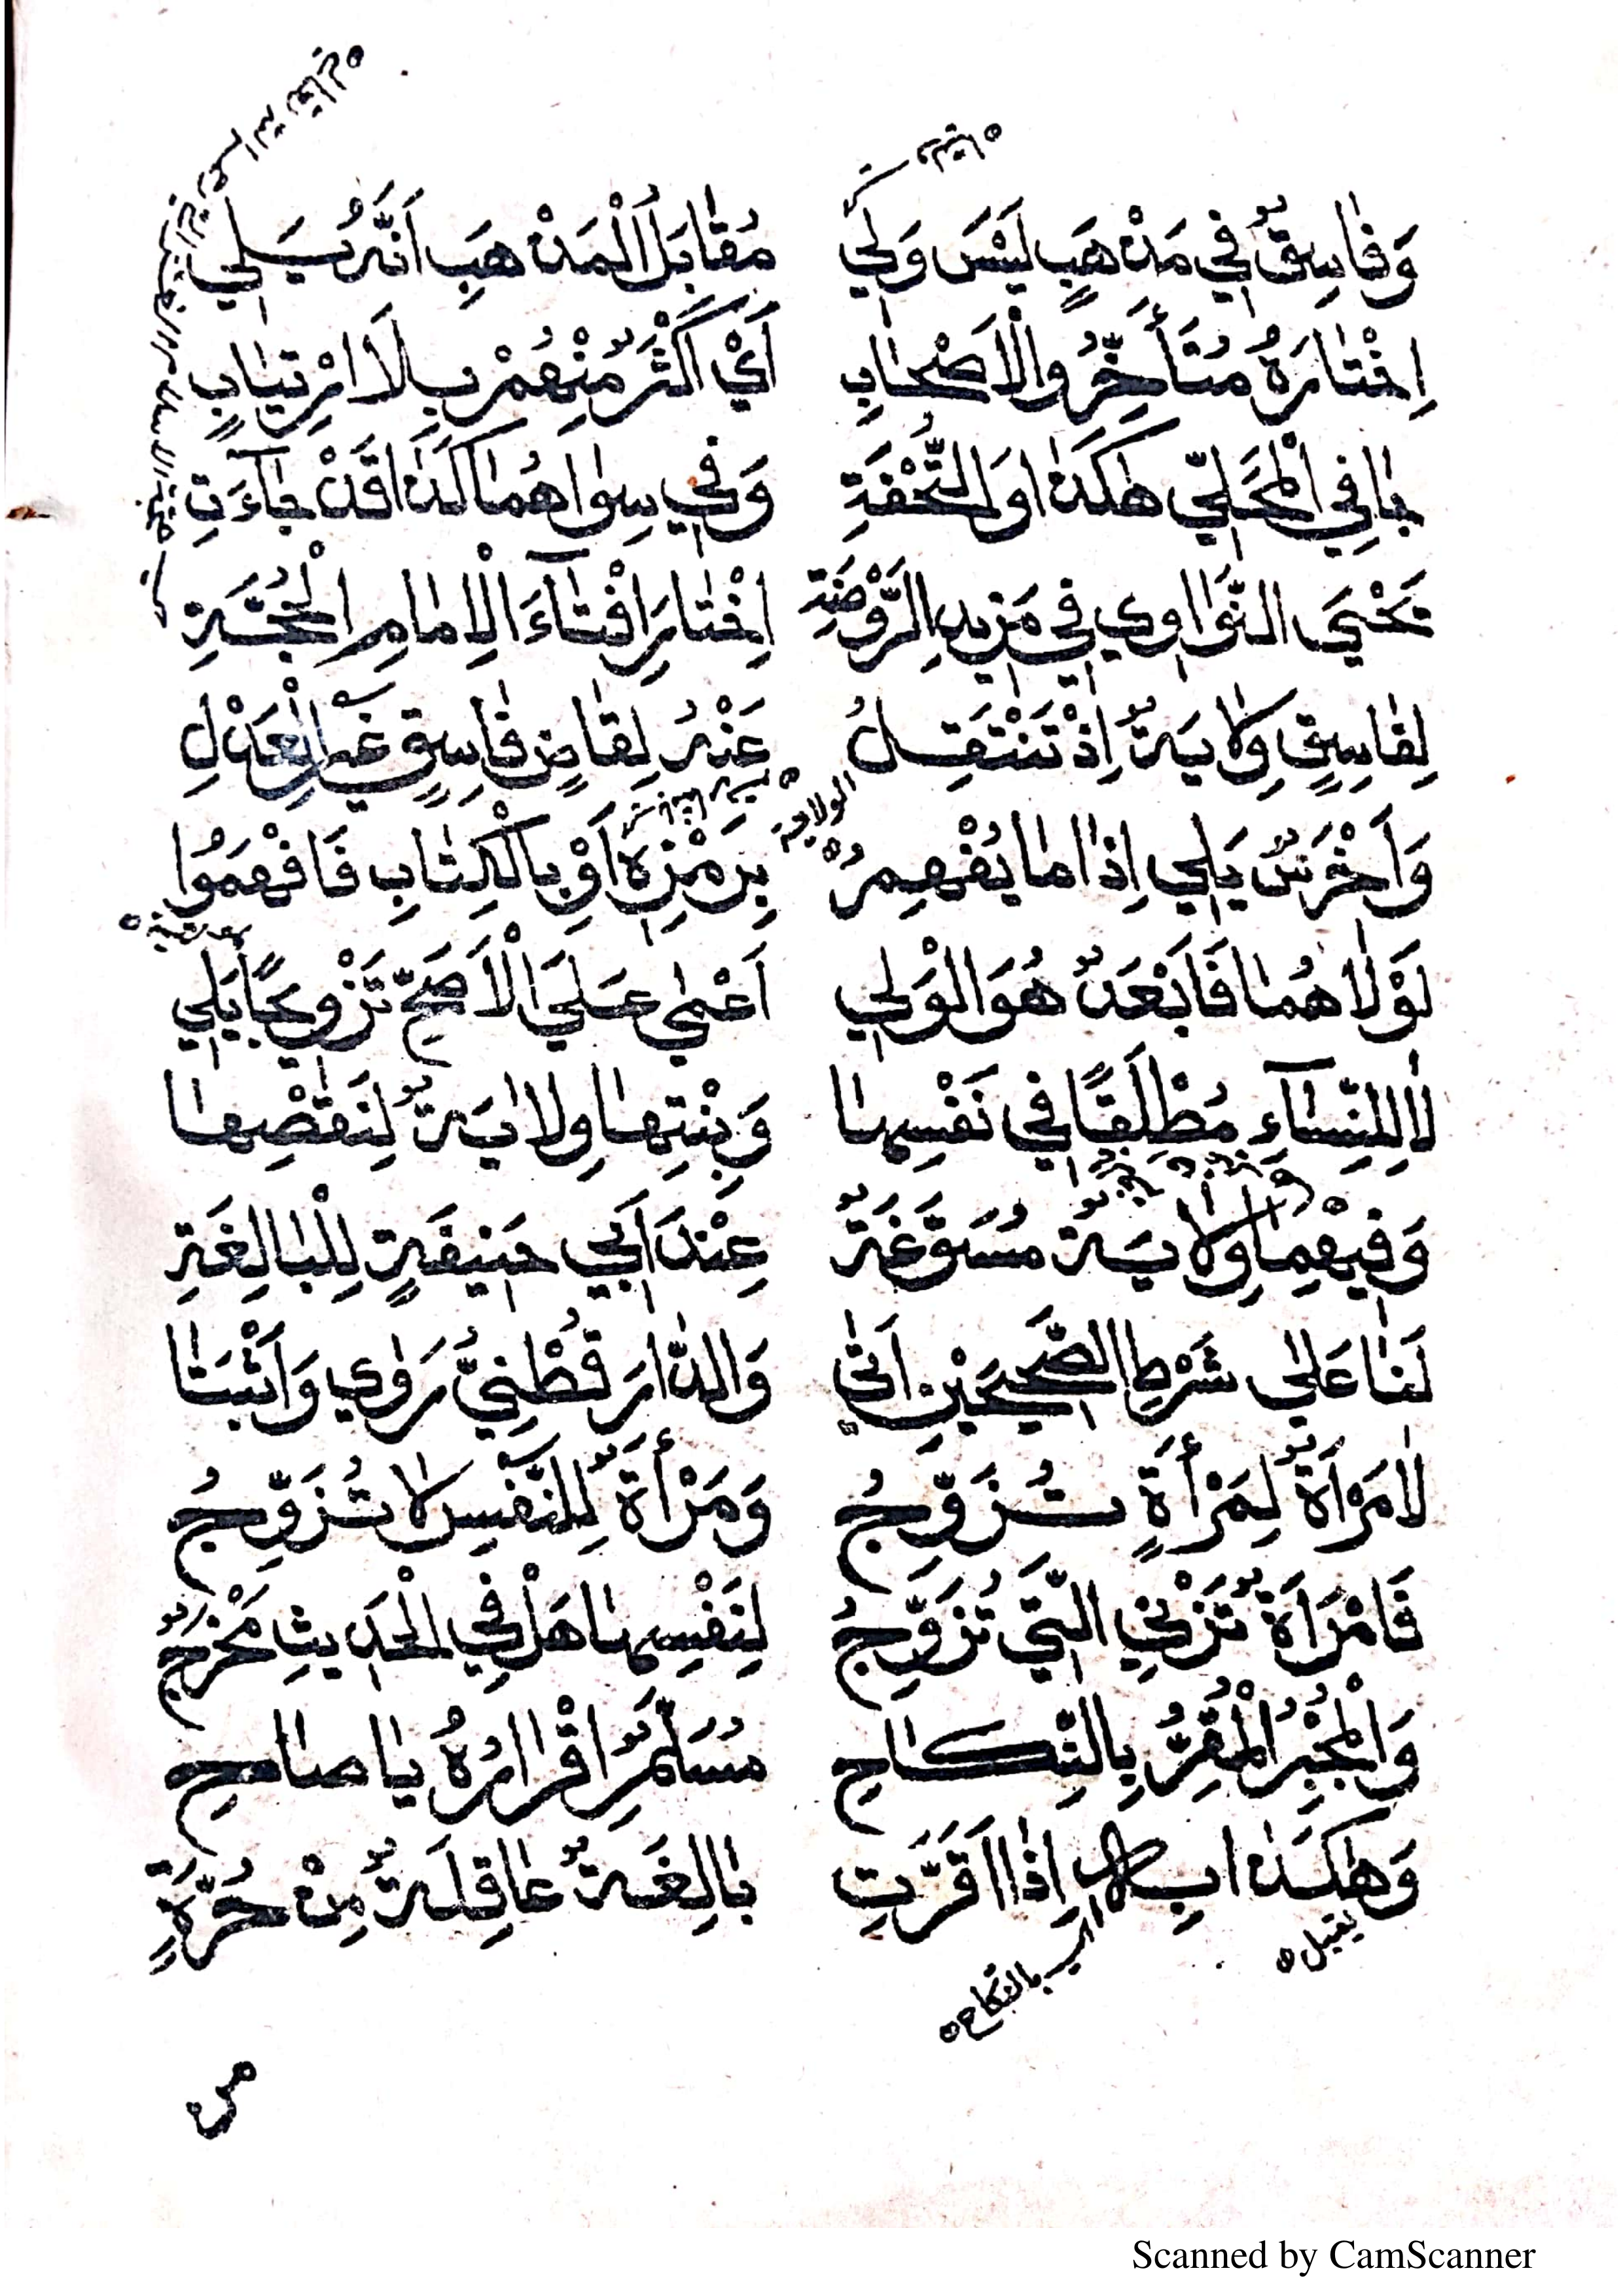 وَفَاسِقٌ فِي مَذْهَبٍ لَيْسَ وَلِي مُقَابَلُ الْمَذْهَبِ اَنَّهُ يَلِي
اِخْتَارَهُ مُتَأَخِّرُوا الْاَصْحَابِ اَيْ اَكْثَرٌ مِنْهُمْ بِلَا ارْتِيَابٍ
جَا فِي الْمَحَلِّي هٰكَذَا وَالتُّحْفَةِ وَفِي سِوَاهُمَا كَذَا قَدْ جَاءَتِ
يَحْيَى النَّوَاوِي فِي مَزِيدِ الرَّوْضَةِ اِخْتَارَ اِفْتَآءَ الْاِمَامِ الْحُجَّةِ
لِفَاسِقٍ وِلَايَةٌ اِذْ تَنْتَقِلُ عَنْهُ لِقَاضٍ فَاسِقٍ غَيْرِ الْعَدْلِ
الولاية
وَاَخْرَسٌ يَلِي اِذَا مَا يُفْهِمُ بِرَمْزِهِ اَوْ بِالْكِتَابِ فَافْهَمُوا
لَوْلَا هُمَا فَاَبْعَدٌ هُوَ الْوَلِي اَعْمٰى عَلَى الْاَصَحِّ تَزْوِيجًا يَلِي
لَا لِلنِّسَآءِ مُطْلَقًا فِي نَفْسِهَا وَبِنْتِهَا وِلَايَةٌ لِنَقْصِهَا
وَفِيْهِمَا وِلَايَةٌ مُسَوَّغَةٌ عِنْدَ اَبِي حَنِيفَةٍ لِلْبَالِغَةِ
لَنَا عَلٰى شَرْطِ الصَّحِيحَيْنِ اَتٰى وَالدَّارَقُطْنِيُّ رَوٰي وَاَثْبَتَا
لَا مَرْاَةٌ لِمَرْأَةٍ تُزَوِّجُ وَمَرْأَةٌ لِلنَّفْسِ لَا تُزَوِّجُ
فَامْرَاَةٌ تَزْنِي الَّتِي تُزَوِّجُ لِنَفْسِهَا هَلْ فِي الْحَدِيثِ مَخْرَجٌ
وَالْمُجْبِرُ الْمُقِرُّ بِالنِّكَاحِ مُسَلَّمٌ اِقْرَارُهُ يَا صَاحِ
وَهٰكَذَا اِذَا اَقَرَّتِ بَالِغَةٌ عَاقِلَةٌ مِنْ حُرَّةٍ
يقبل
بالنكاح